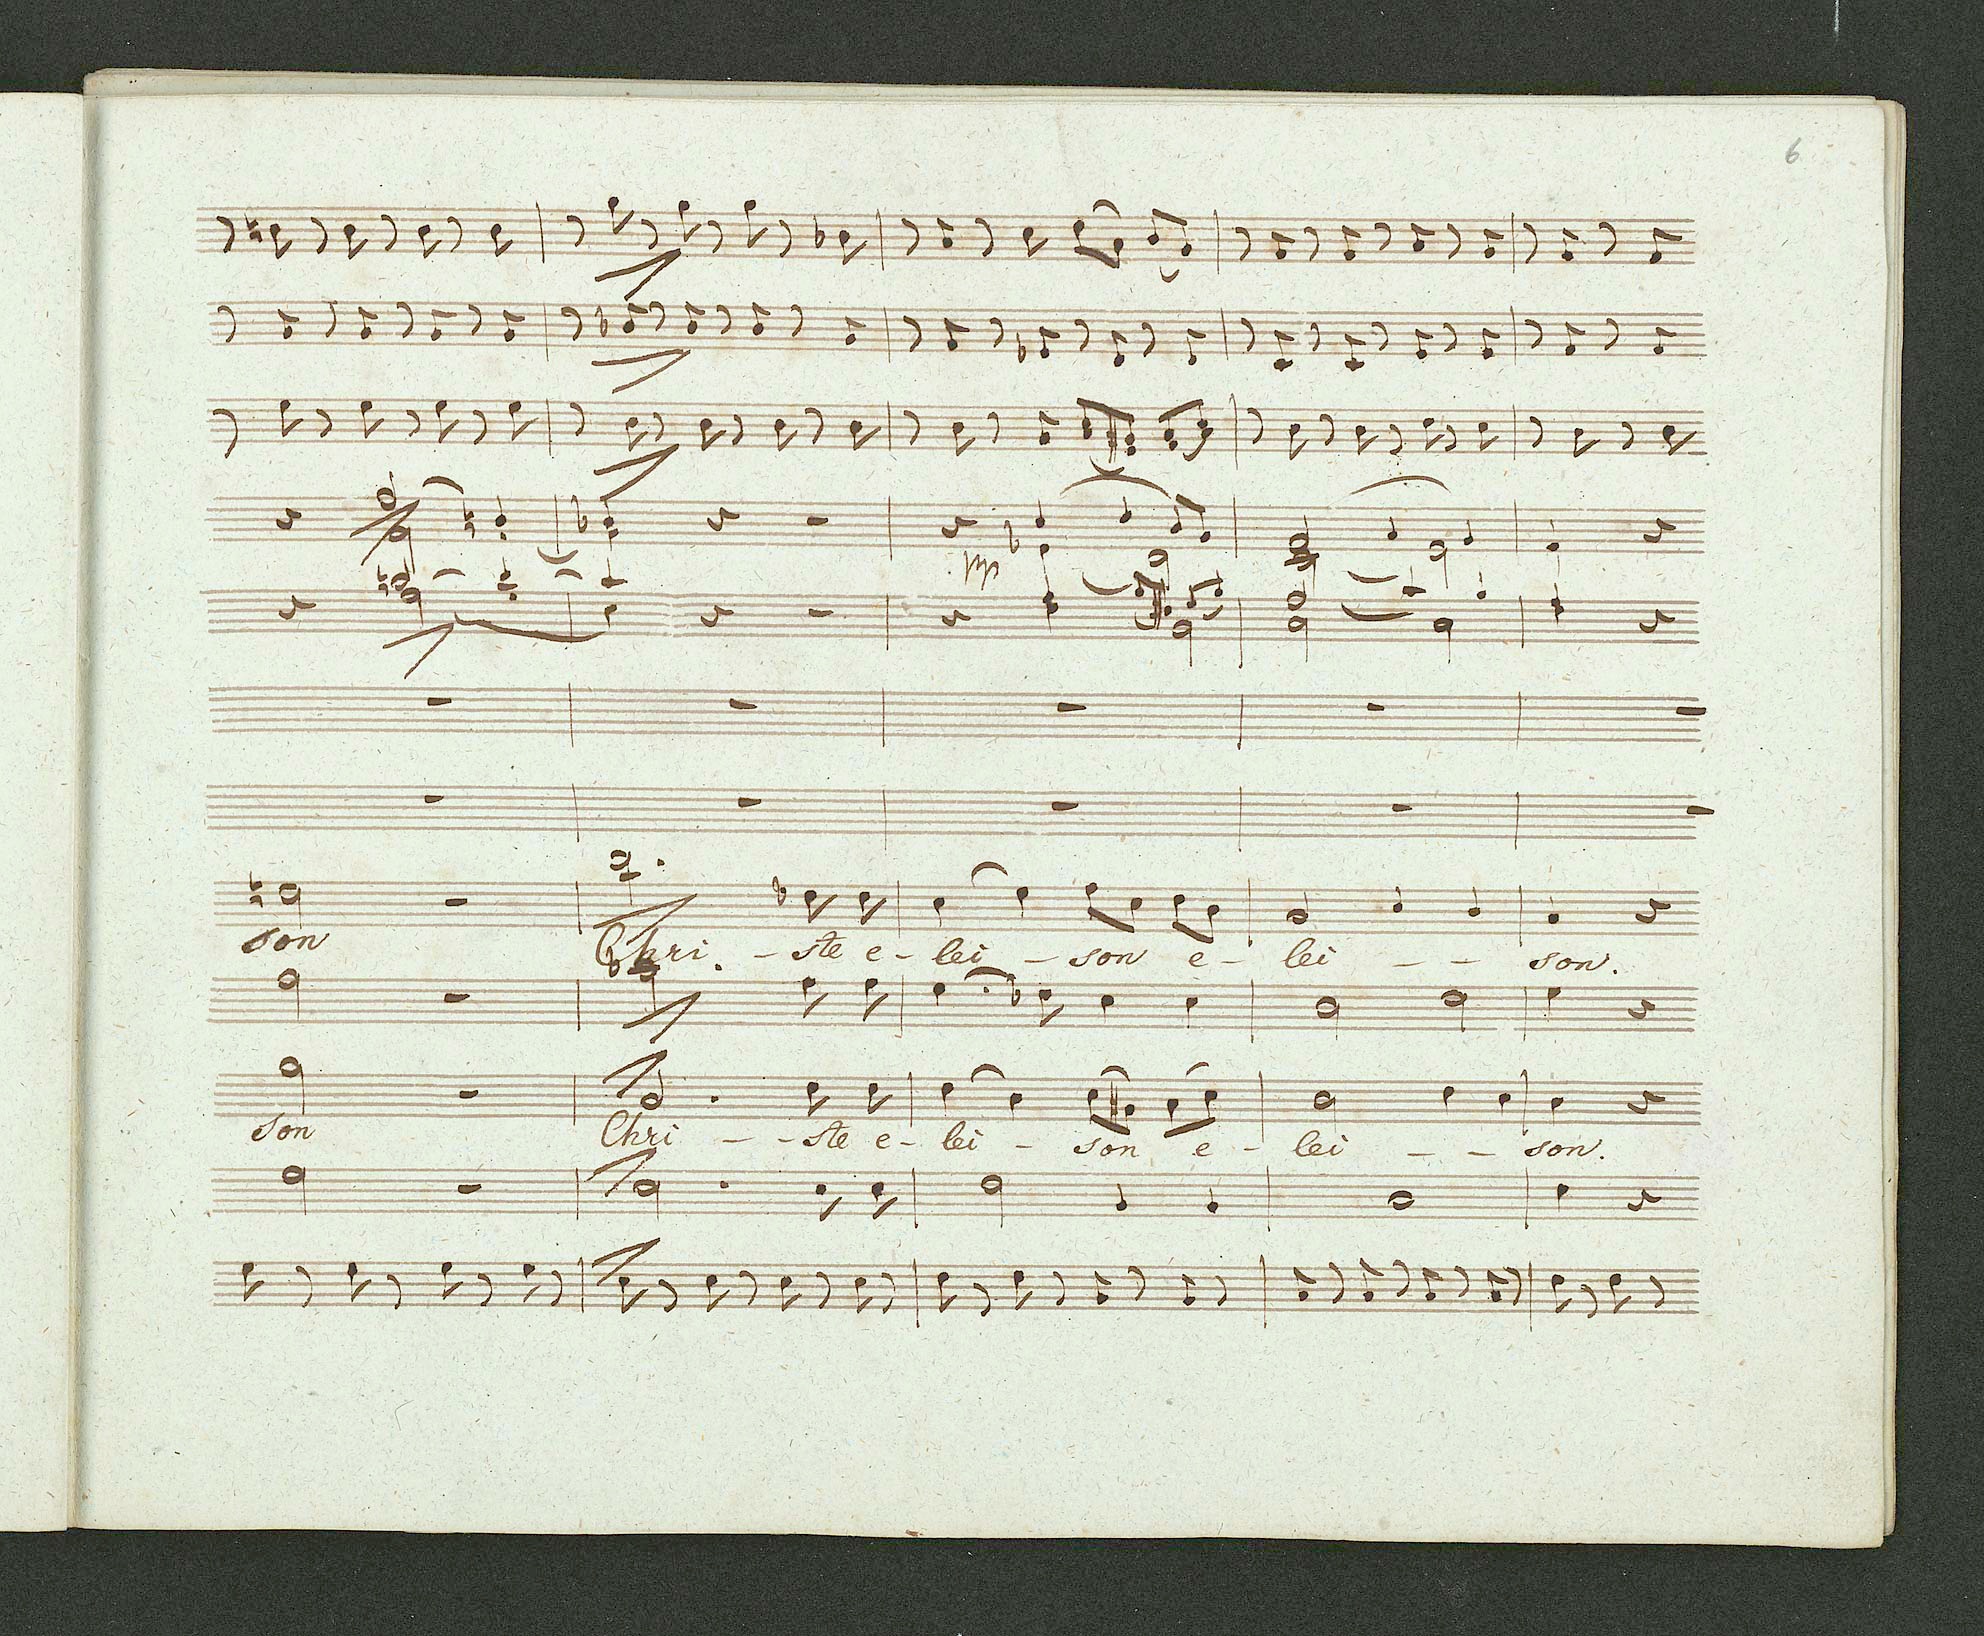 6
pp
son Chri - ste e - lei - son e - lei - - son.
son Chri - - ste e - lei - son e - lei - - son.